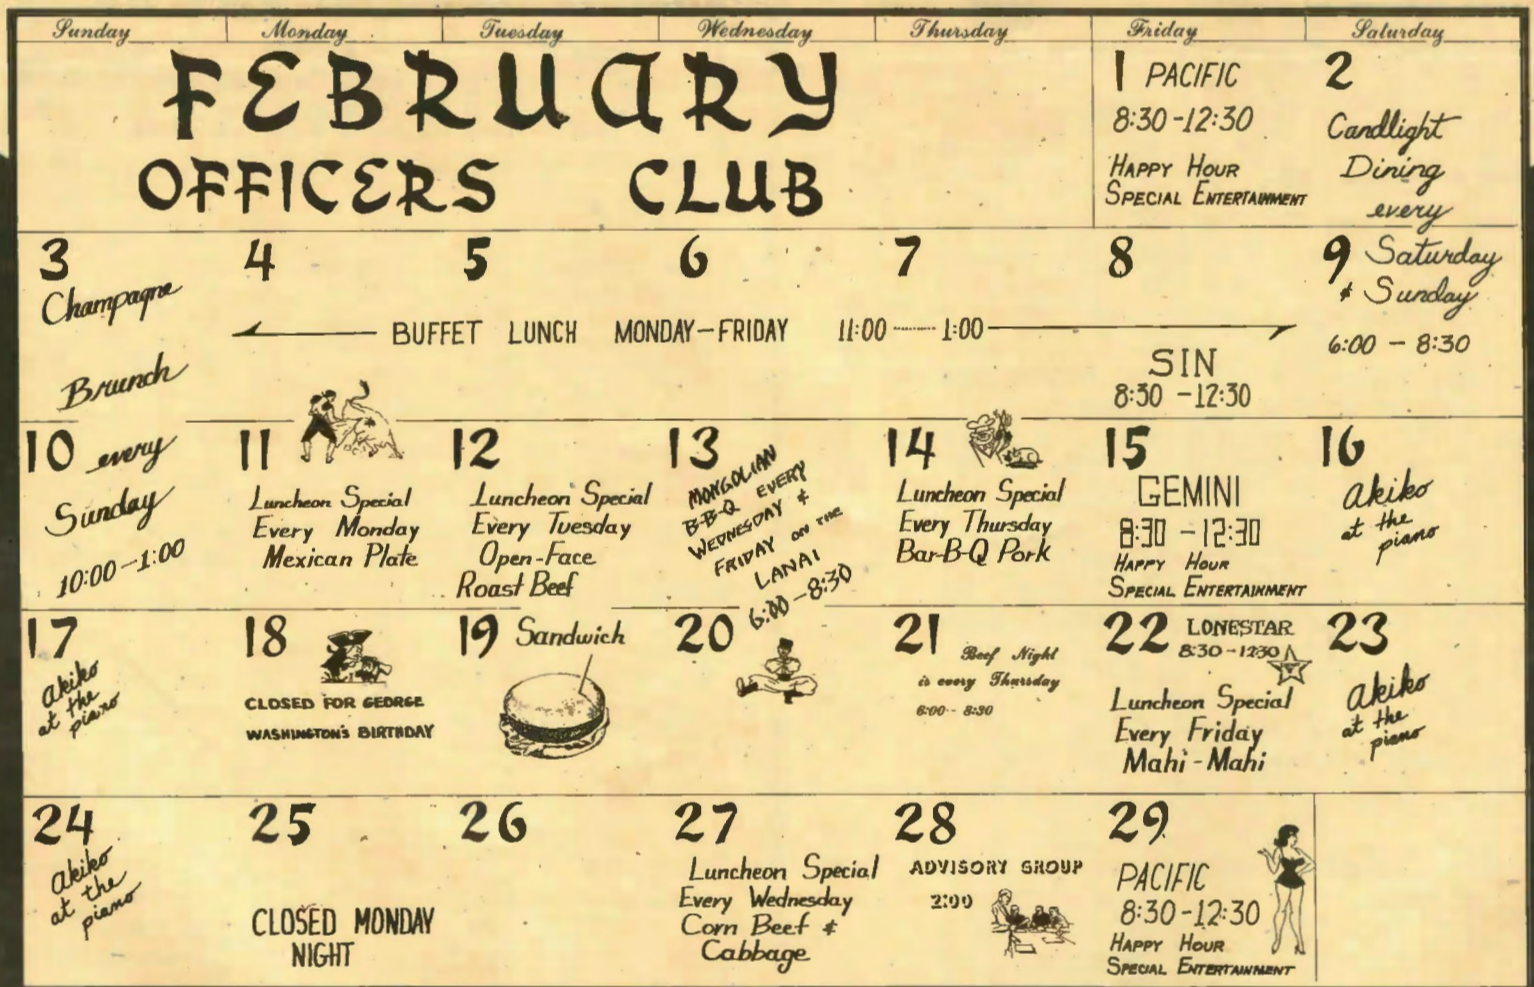 Sunday Monday Tuesday Wednesday Thursday Friday Saturday
FEBRUARY
OFFICERS CLUB
1 PACIFIC
8:30-12:30
HAPPY HOUR
SPECIAL ENTERTAINMENT
2
Candlight
Dining
every
3
Champagne
Brunch
4
5
6
7
8
BUFFET LUNCH MONDAY-FRIDAY 11:00-------1:00
SIN
8:30 -12:30
9 Saturday
& Sunday
6:00 - 8:30
10 every
Sunday
10:00-1:00
11
Luncheon Special
Every Monday
Mexican Plate
12
Luncheon Special
Every Tuesday
Open-Face
Roast Beef
13
MONGOLIAN
B-B-Q EVERY
WEDNESDAY &
FRIDAY ON THE
LANAI
6:00-8:30
14
Luncheon Special
Every Thursday
Bar-B-Q Pork
15
GEMINI
8:30 -12:30
HAPPY HOUR
SPECIAL ENTERTAINMENT
16
Akiko
at the
piano
17
Akiko
at the
piano
18
CLOSED FOR GEORGE
WASHINGTON'S BIRTHDAY
19 Sandwich
20
21
Beef Night
is every Thursday
6:00- 8:30
22 LONESTAR
8:30-1230
Luncheon Special
Every Friday
Mahi-Mahi
23
Akiko
at the
piano
24
Akiko
at the
piano
25
CLOSED MONDAY
NIGHT
26
27
Luncheon Special
Every Wednesday
Corn Beef &
Cabbage
28
ADVISORY GROUP
2:00
29
PACIFIC
8:30-12:30
HAPPY HOUR
SPECIAL ENTERTAINMENT